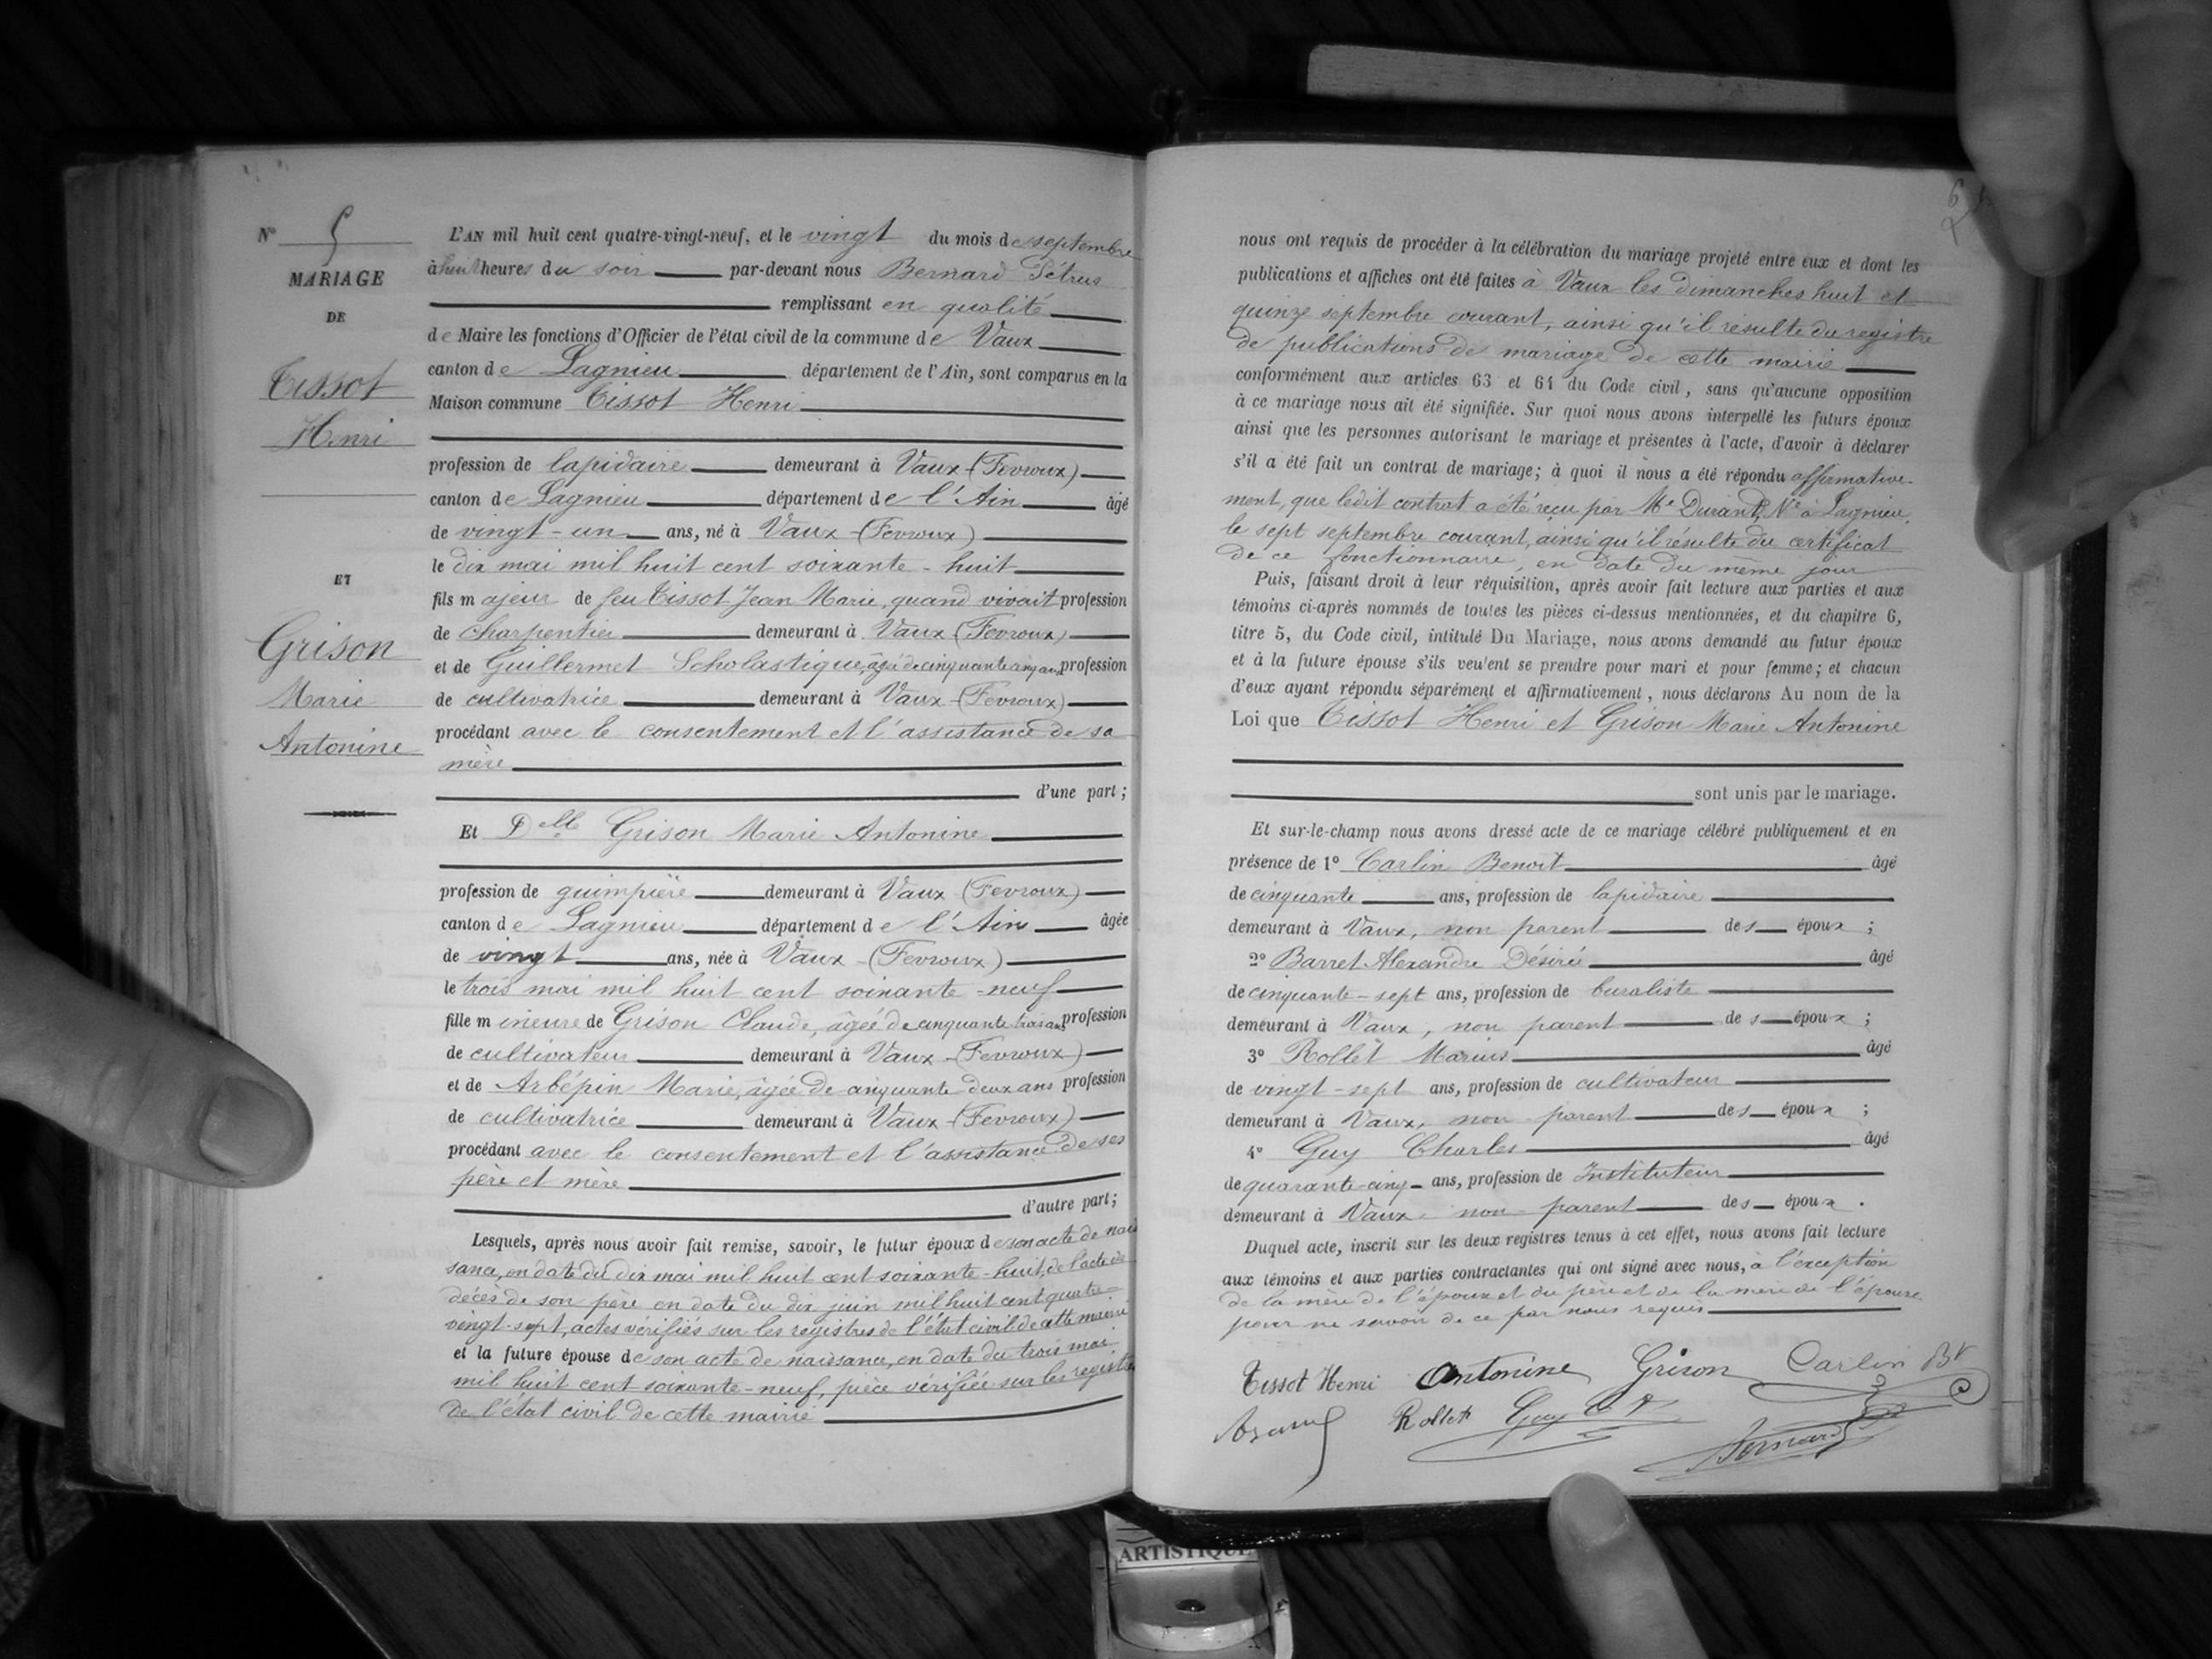 N° 5
MARIAGE
DE
Tissot
Henri
ET
Grison
Marie
Antonine
L'AN mil huit cent quatre-vingt-neuf, et le vingt du mois de septembre
à huit heures du soir par-devant nous Bernard Pétrus
remplissant en qualité
de Maire les fonctions d'Officier de l'état civil de la commune de Vaux
canton de Lagnieu département de l'Ain, sont comparus en la
Maison commune Tissot Henri
profession de lapidaire demeurant à Vaux-(Fevroux)
canton de Lagnieu département de l'Ain âgé
de vingt-un ans, né à Vaux-(Fevroux)
le dix mai mil huit cent soixante-huit
fils majeur de feu Tissot Jean Marie, quand vivait profession
de charpentier demeurant à Vaux (Fevroux)
et de Guillermet Scholastique, âgée de cinquante cinq ans profession
de cultivatrice demeurant à Vaux-(Fevroux)
procédant avec le consentement et l'assistance de sa
mère
d'une part;
Et Delle Grison Marie Antonine
profession de guimpière demeurant à Vaux-(Fevroux)
canton de Lagnieu département de l'Ain âgée
de vingt ans, née à Vaux-(Fevroux)
le trois mai mil huit cent soixante-neuf
fille mineure de Grison Claude, âgée de cinquante trois ans profession
de cultivateur demeurant à Vaux-(Fevroux)
et de Arbépin Marie, âgée de cinquante deux ans profession
de cultivatrice demeurant à Vaux-(Fevroux)
procédant avec le consentement et l'assistance de ses
père et mère
d'autre part;
Lesquels, après nous avoir fait remise, savoir, le futur époux de son acte de nais
sance, en date du dix mai mil huit cent soixante-huit, de l'acte de
décès de son père en date du dix juin mil huit cent quatre
vingt-sept, actes vérifiés sur les registres de l'état civil de cette mairie
et la future épouse de son acte de naissance, en date du trois mai
mil huit cent soixante-neuf, pièce vérifiée sur les registres
de l'état civil de cette mairie
6
nous ont requis de procéder à la célébration du mariage projeté entre eux et dont les
publications et affiches ont été faites à Vaux les dimanches huit et
quinze septembre courant, ainsi qu'il résulte du registre
de publications de mariage de cette mairie
conformément aux articles 63 et 64 du Code civil, sans qu'aucune opposition
à ce mariage nous ait été signifiée. Sur quoi nous avons interpellé les futurs époux
ainsi que les personnes autorisant le mariage et présentes à l'acte, d'avoir à déclarer
s'il a été fait un contrat de mariage; à quoi il nous a été répondu affirmative-
ment, que ledit contrat a été reçu par Me Durand, Nre à Lagnieu,
le sept septembre courant, ainsi qu'il résulte du certificat
de ce fonctionnaire, en date du même jour
Puis, faisant droit à leur réquisition, après avoir fait lecture aux parties et aux
témoins ci-après nommés de toutes les pièces ci-dessus mentionnées, et du chapitre 6,
titre 5, du Code civil, intitulé Du Mariage, nous avons demandé au futur époux
et à la future épouse s'ils veulent se prendre pour mari et pour femme; et chacun
d'eux ayant répondu séparément et affirmativement, nous déclarons Au nom de la
Loi que Tissot Henri et Grison Marie Antonine
sont unis par le mariage.
Et sur-le-champ nous avons dressé acte de ce mariage célébré publiquement et en
présence de 1° Carlin Benoit âgé
de cinquante ans, profession de lapidaire
demeurant à Vaux, non parent des époux;
2° Barret Alexandre Désiré âgé
de cinquante-sept ans, profession de buraliste
demeurant à Vaux, non parent des époux;
3° Rollet Marius âgé
de vingt-sept ans, profession de cultivateur
demeurant à Vaux, non parent des époux;
4° Guy Charles âgé
de quarante-cinq ans, profession de Instituteur
demeurant à Vaux, non parent des époux.
Duquel acte, inscrit sur les deux registres tenus à cet effet, nous avons fait lecture
aux témoins et aux parties contractantes qui ont signé avec nous, à l'exception
de la mère de l'époux et du père et de la mère de l'épouse
pour ne savoir de ce par nous requis
Tissot Henri Antonine Grison Carlin Bt
Rollet Guy Bernard
ARTISTIQUE